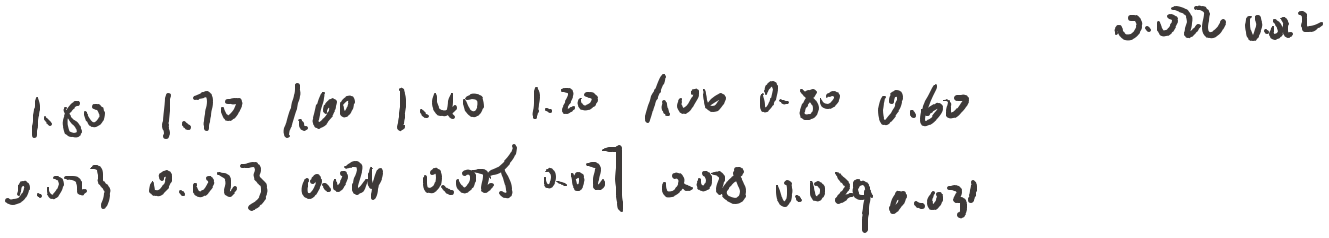 0.022 0.022
1.80 1.70 1.60 1.40 1.20 1.00 0.80 0.60
0.023 0.023 0.024 0.025 0.027 0.028 0.029 0.031